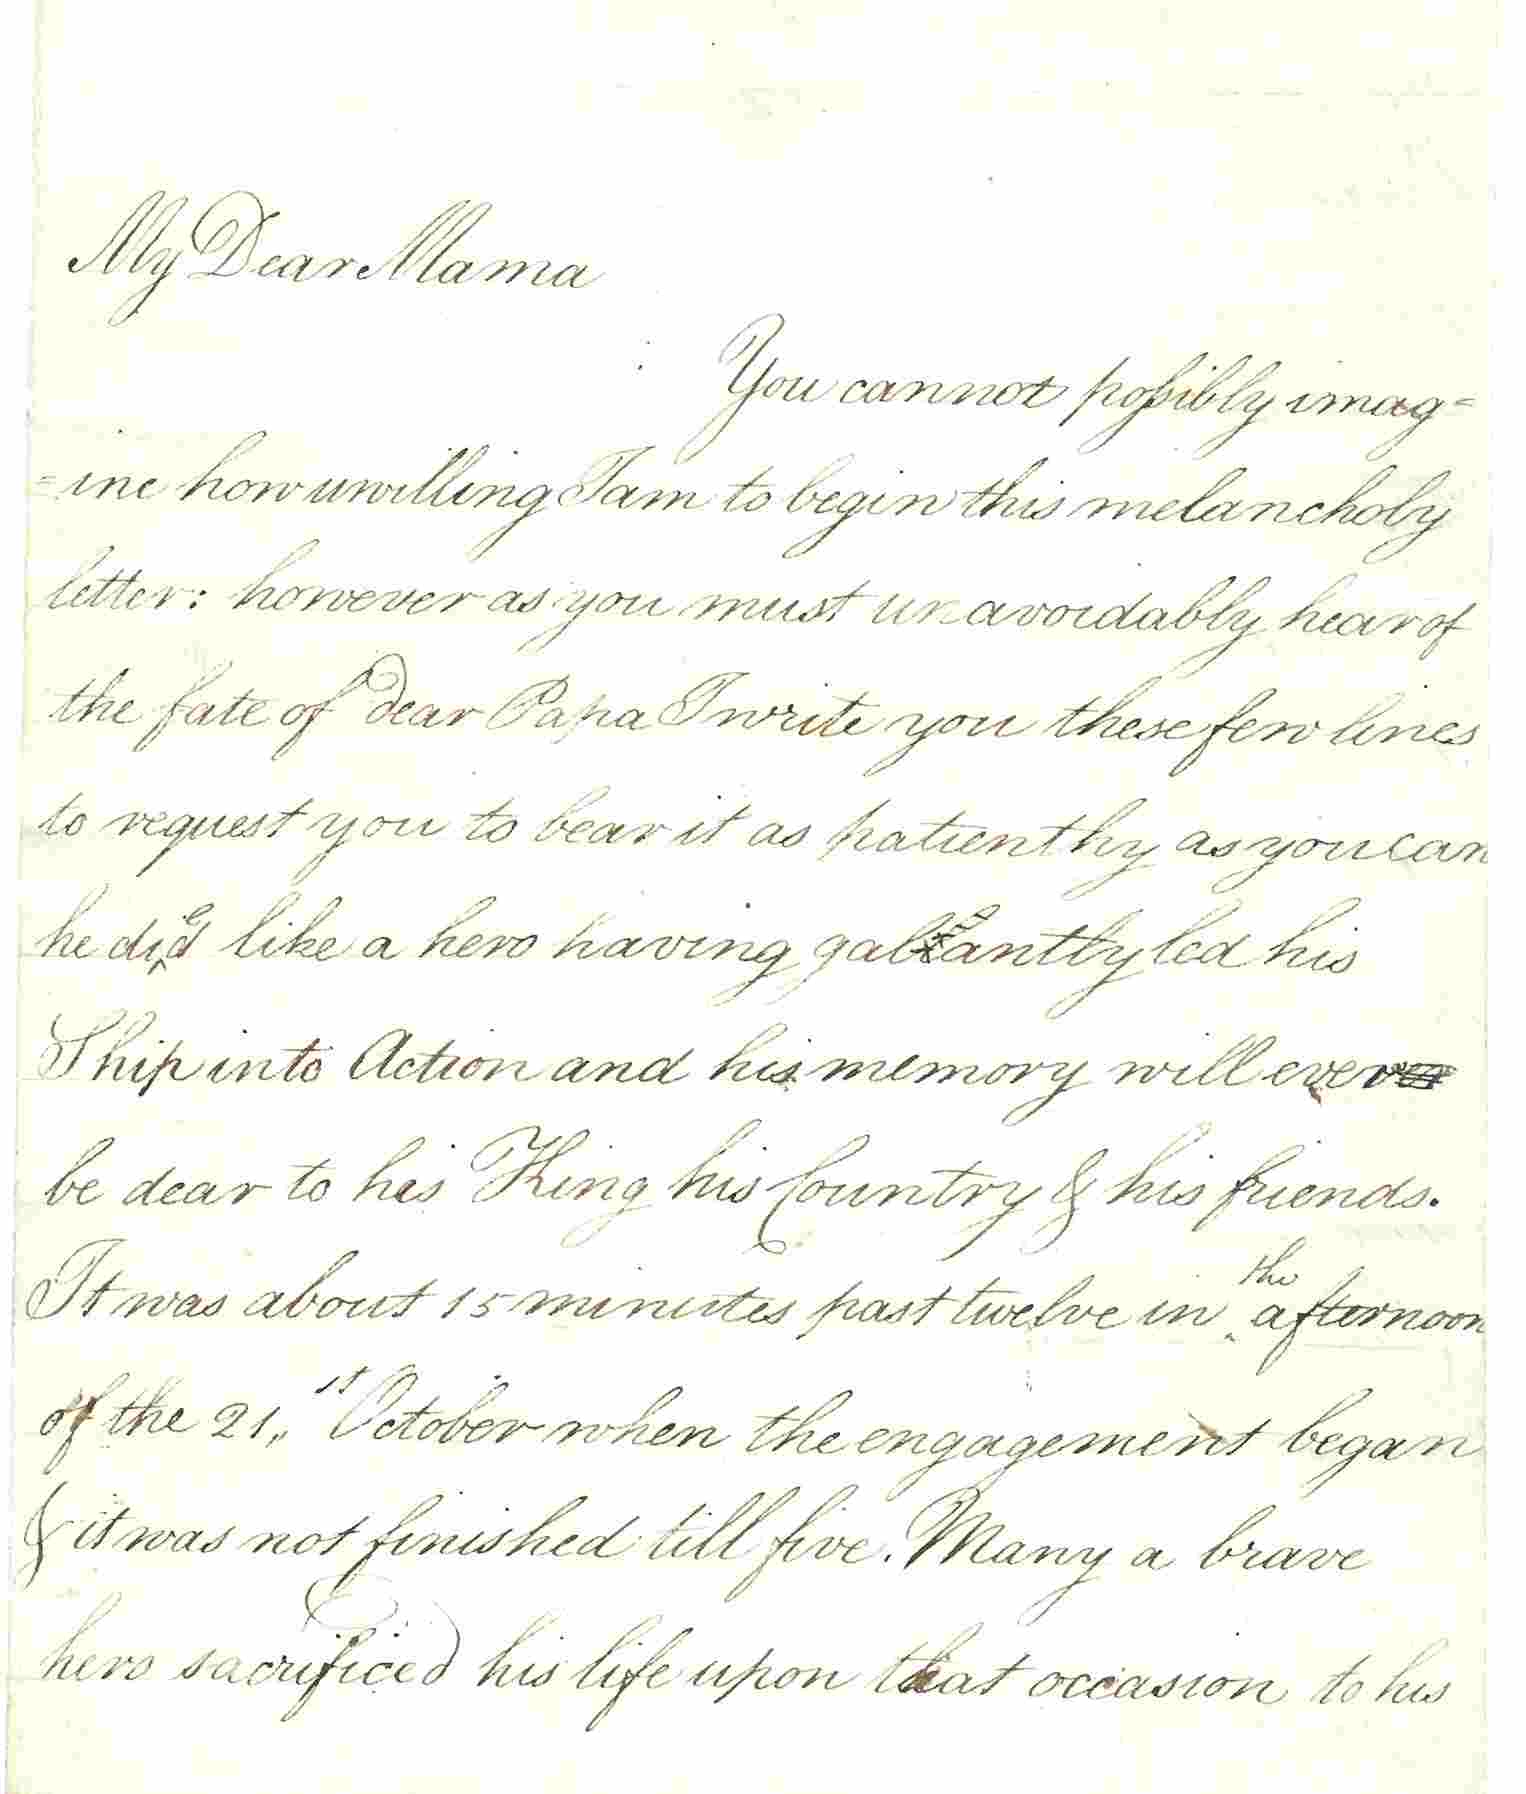 My Dear Mama
You cannot poſsibly imag=
=ine how unwilling I am to begin this melancholy
letter: however as you must unavoidably hear of
the fate of dear Papa I write you these few lines
to request you to bear it as patiently as you can
he died like a hero having gallantly led his
Ship into Action and his memory will ever
be dear to his King his Country & his friends.
It was about 15 minutes past twelve in the afternoon
of the 21,, st October when the engagement began
& it was not finished till five. Many a brave
hero sacrificed his life upon that occasion to his